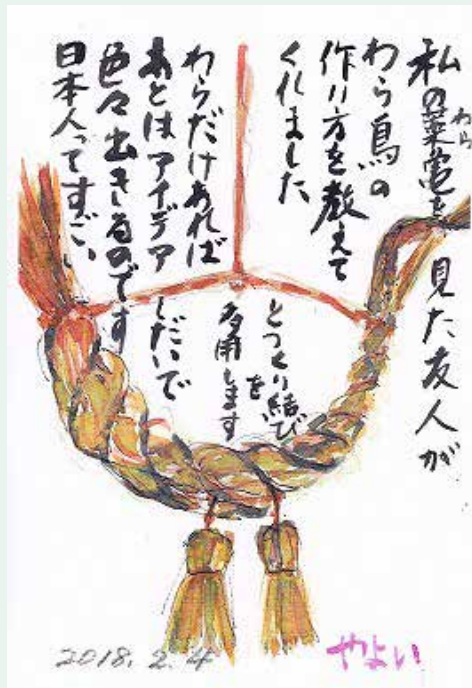 私の藁亀を見た友人が
わら
わら鳥の
作り方を教えて
くれました
わらだけあれば
あとはアイデアしだいで
色々出きるのです
日本人ってすごい
とっくり結び
を
多用します
2018.2.4
やよい